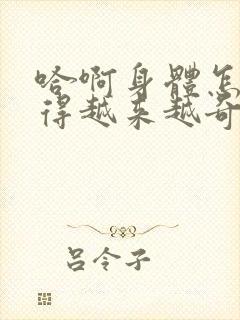 哈啊身體怎
得越来越奇
吕令子